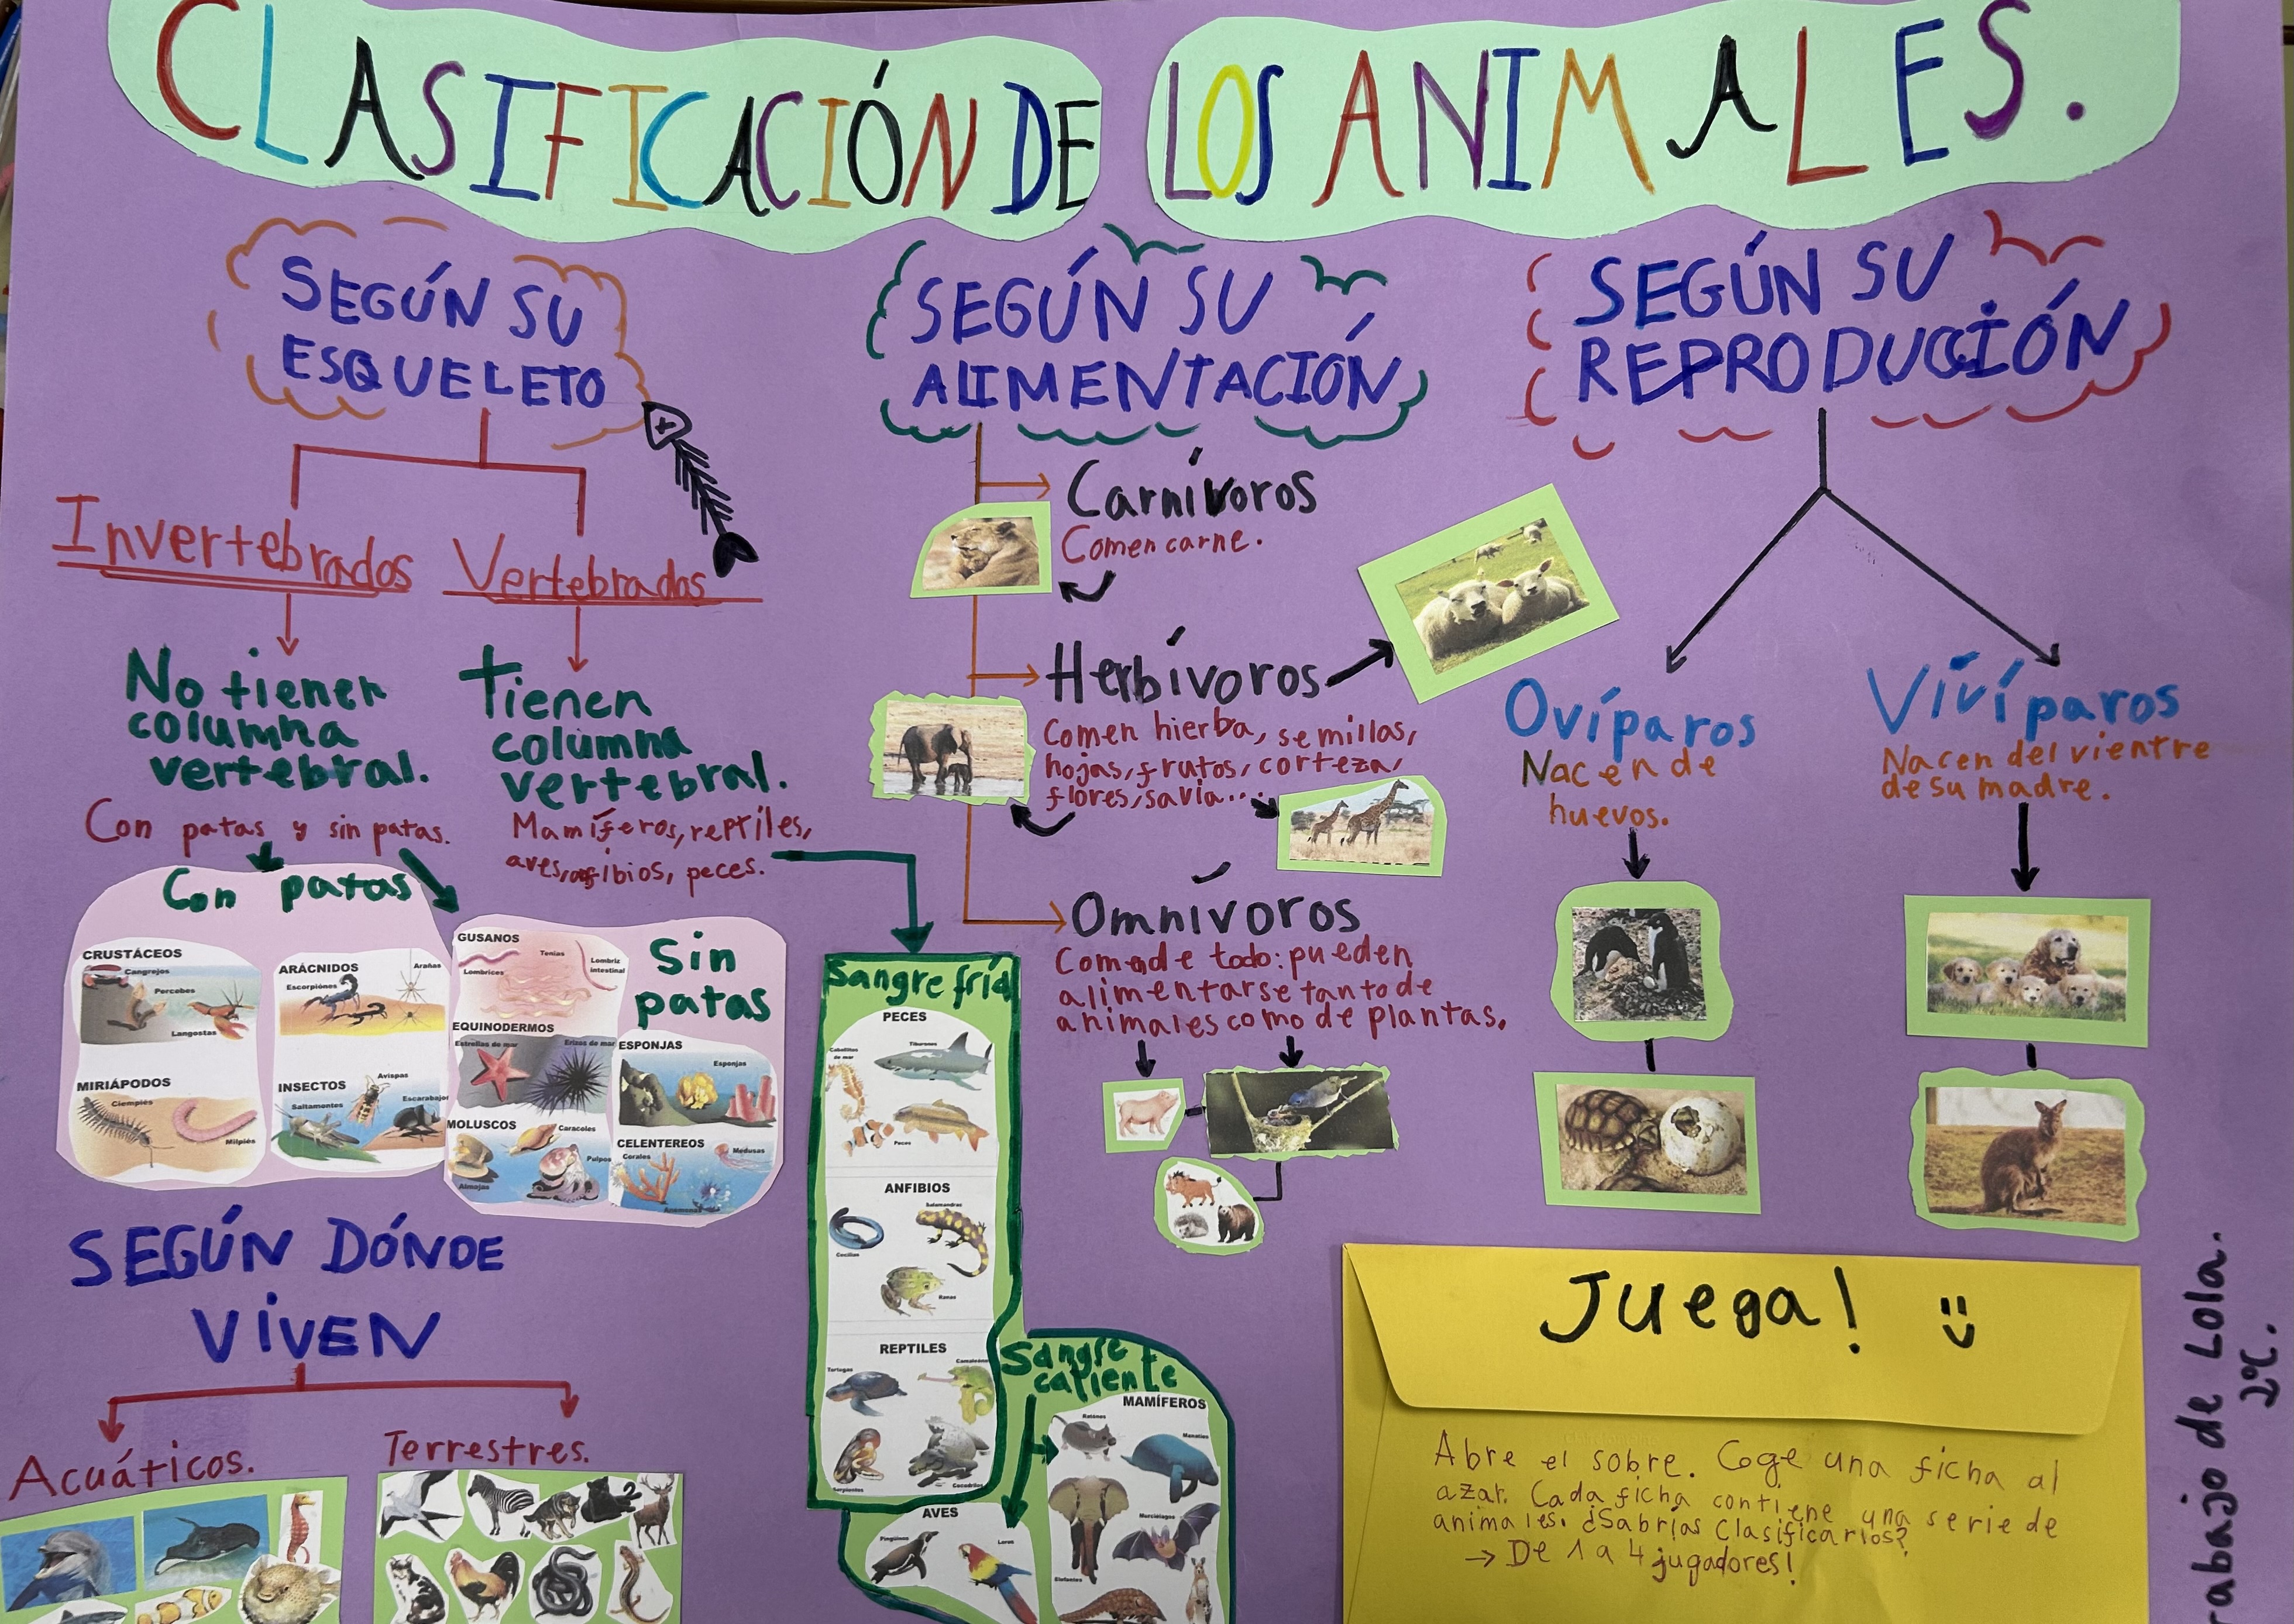 CLASIFICACIÓN DE LOS ANIMALES.
SEGÚN SU
ESQUELETO
Invertebrados
Vertebrados
No tienen
columna
vertebral.
Con patas y sin patas.
Tienen
columna
vertebral.
Mamíferos, reptíles,
aves, anfibios, peces.
Con patas
CRUSTÁCEOS
Cangrejos
Percebes
Langostas
ARÁCNIDOS
Arañas
Escorpiónes
MIRIÁPODOS
Ciempiés
Milpiés
INSECTOS
Avispas
Saltamontes
Escarabajos
Sin
patas
GUSANOS
Tenias
Lombrices
Lombriz
intestinal
EQUINODERMOS
Estrellas de mar
Erizos de mar
ESPONJAS
Esponjas
MOLUSCOS
Caracoles
Pulpos
Almejas
CELENTEREOS
Medusas
Corales
Anemonas
Sangre fría
PECES
Caballitos
de mar
Tiburones
Peces
ANFIBIOS
Salamandras
Cecilias
Ranas
REPTILES
Tortugas
Camaleones
Serpientes
Cocodrilos
Sangre
caliente
MAMÍFEROS
Ratónes
Manatíes
Murciélagos
Elefantes
AVES
Pingüinos
Loros
SEGÚN SU
ALIMENTACIÓN
Carnívoros
Comen carne.
Herbívoros
Comen hierba, semillas,
hojas, frutos, corteza,
flores, savia...
Omnívoros
Comen de todo: pueden
alimentarse tanto de
animales como de plantas.
SEGÚN SU
REPRODUCCIÓN
Ovíparos
Nacen de
huevos.
Vivíparos
Nacen del vientre
de su madre.
SEGÚN DÓNDE
VIVEN
Acuáticos.
Terrestres.
Juega!
Abre el sobre. Coge una ficha al
azar. Cada ficha contiene una serie de
animales. ¿Sabrías clasificarlos?
→ De 1 a 4 jugadores!
rabajo de Lola.
2ºC.